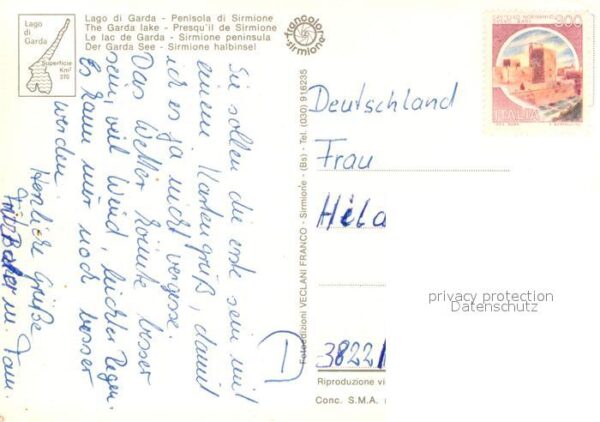 Lago
di
Garda
Superficie
Km²
370
Lago di Garda - Penisola di Sirmione
The Garda lake - Presqu'il de Sirmione
Le lac de Garda - Sirmione peninsula
Der Garda See - Sirmione halbinsel
francolor
sirmione
Sie sollen die erste sein mit
einem Kartengruß, damit
ich es ja nicht vergesse.
Das Wetter könnte besser
sein, viel Wind, leichter Regen.
Es kann nur noch besser
werden.
Herzliche Grüße
Fritz u. Fam.
Fotoedizioni VECLANI FRANCO - Sirmione - (Bs) - Tel. (030) 916235
CASTELLO NORMANNO
300
ITALIA
Deutschland
Frau
Hela
privacy protection
Datenschutz
D
3822
Riproduzione vi
Conc. S.M.A.